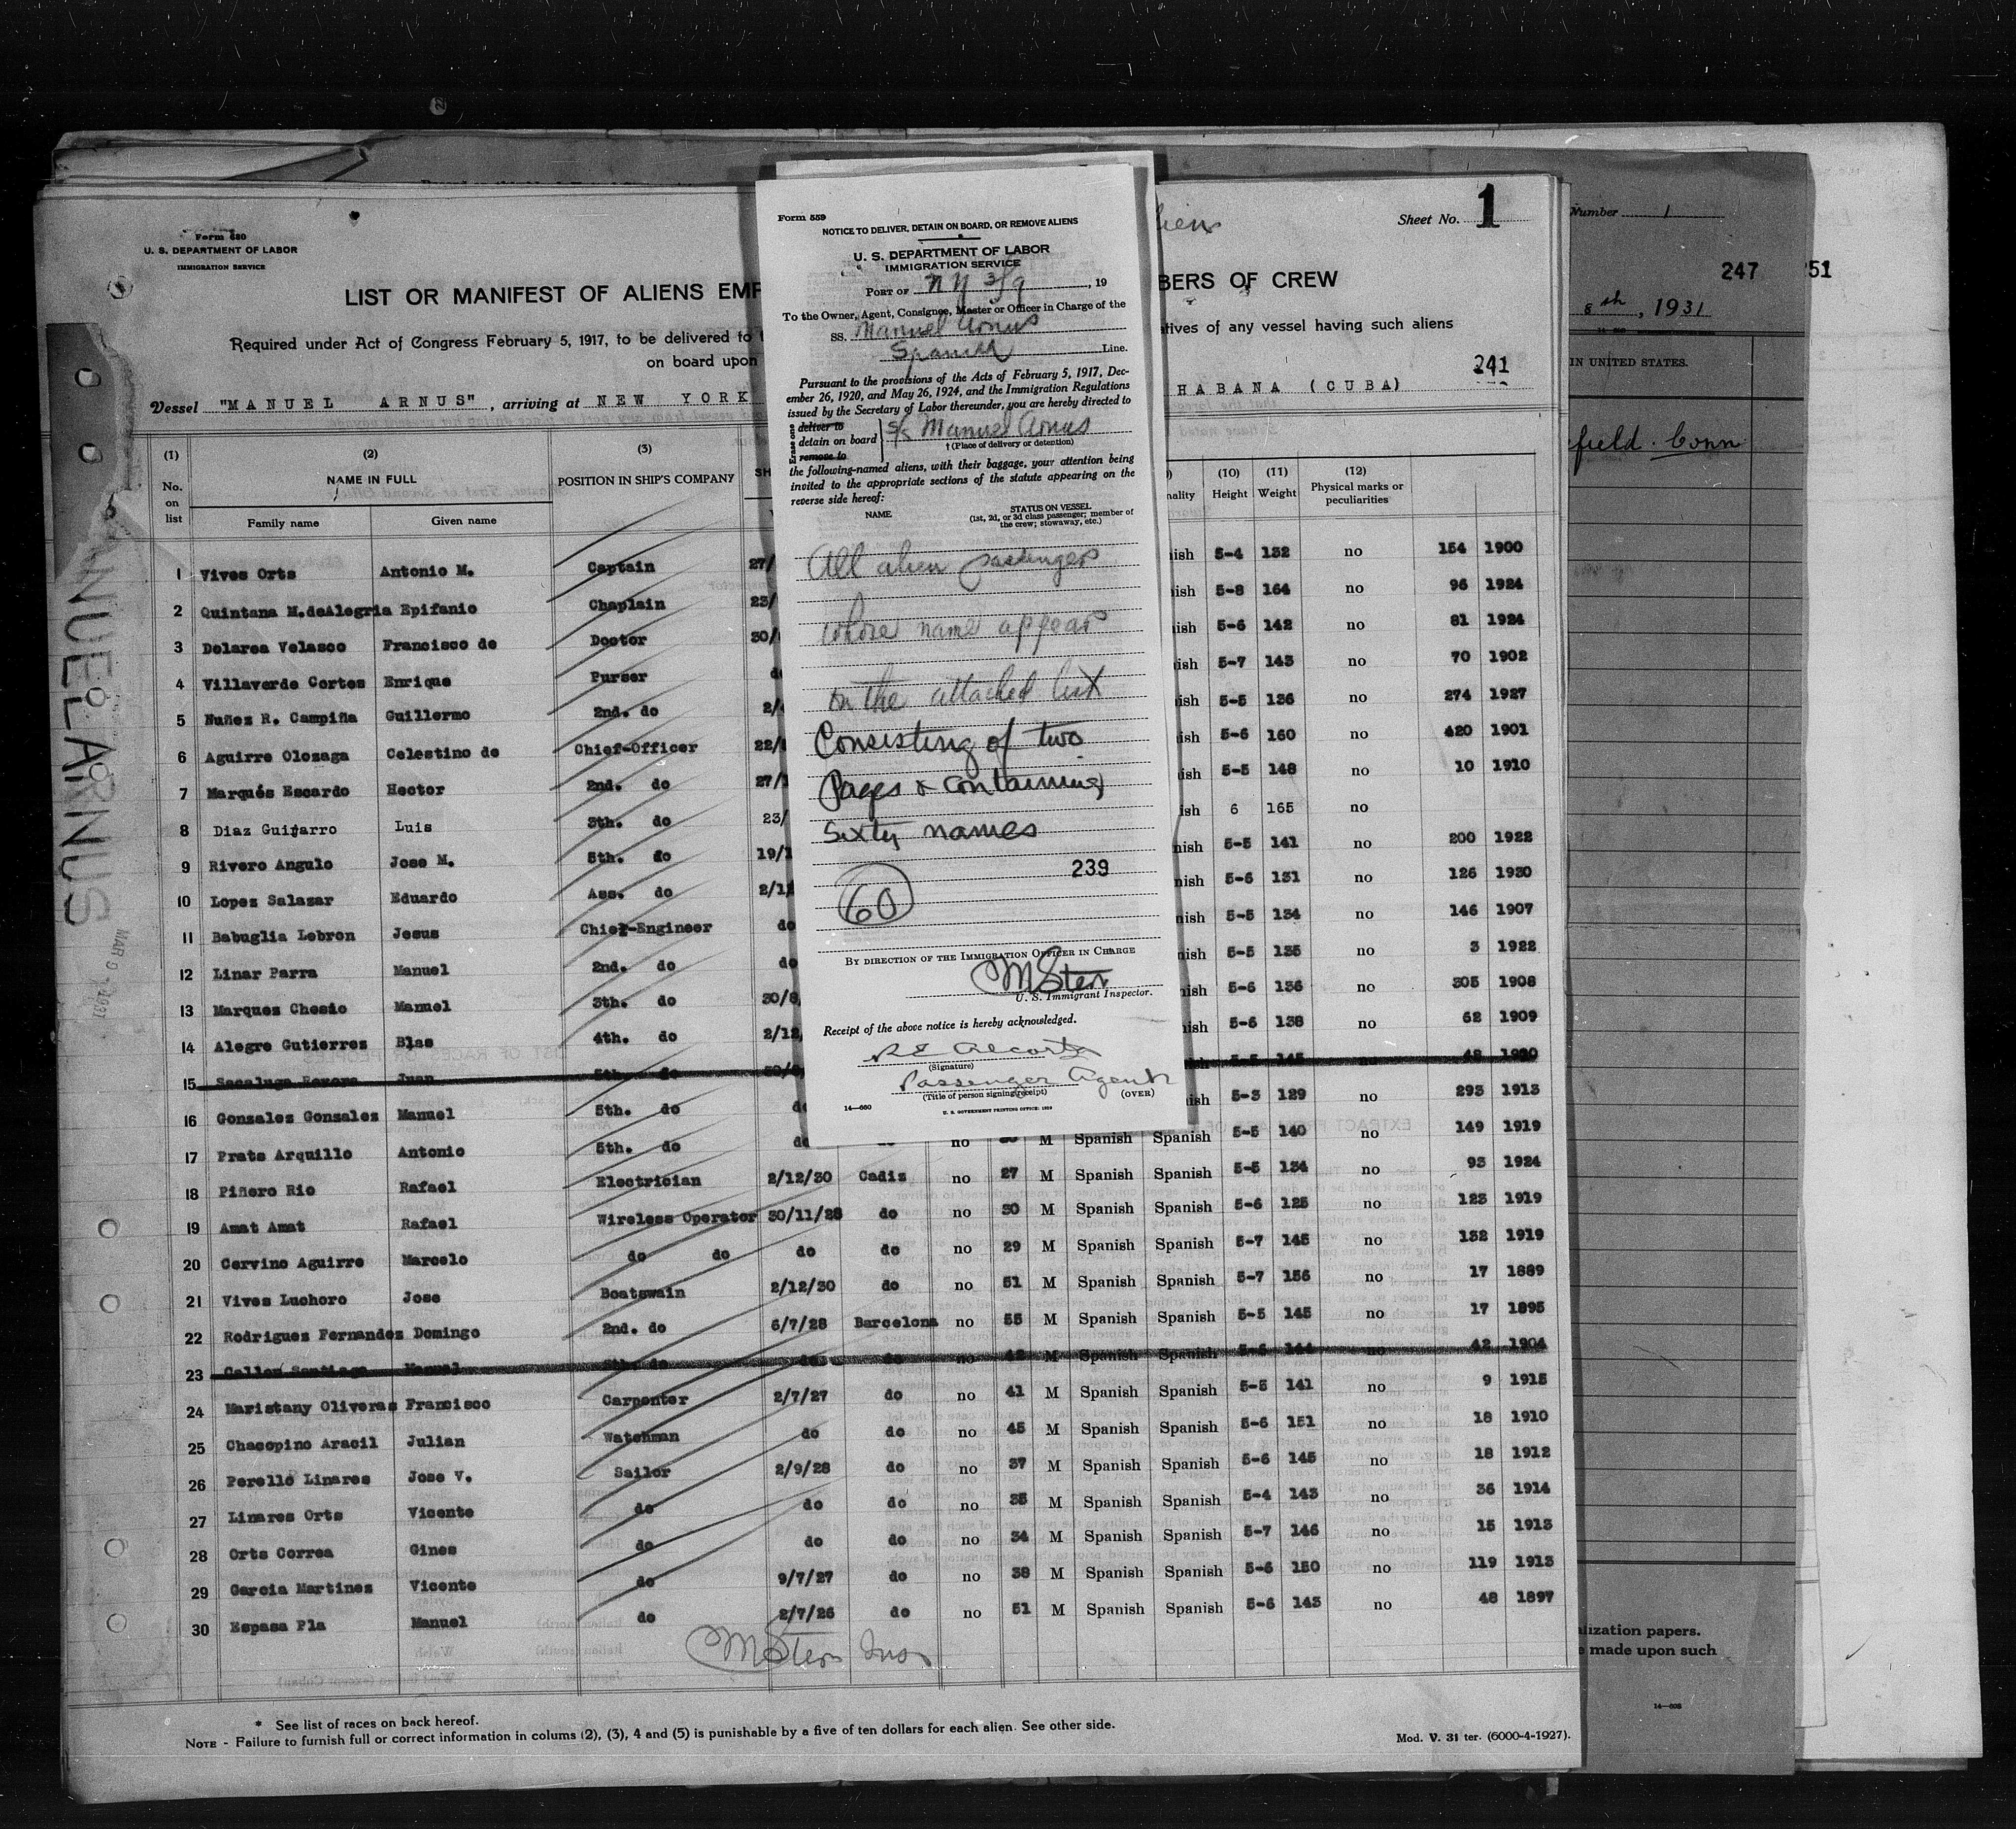 Form 680
U. S. DEPARTMENT OF LABOR
IMMIGRATION SERVICE
Sheet No. 1
LIST OR MANIFEST OF ALIENS EMP
BERS OF CREW
Required under Act of Congress February 5, 1917, to be delivered to
atives of any vessel having such aliens
on board upon
241
Vessel "MANUEL ARNUS", arriving at NEW YORK
HABANA (CUBA)
(1) (2) (3) (10) (11) (12)
No. on list NAME IN FULL POSITION IN SHIP'S COMPANY Height Weight Physical marks or peculiarities
Family name Given name
1 Vives Orts Antonio M. Captain 27/ ish 5-4 132 no 154 1900
2 Quintana M.deAlegria Epifanio Chaplain 23/ ish 5-8 164 no 96 1924
3 Delarea Velasco Francisco de Doctor 30/ ish 5-6 142 no 81 1924
4 Villaverde Cortes Enrique Purser ish 5-7 143 no 70 1902
5 Nuñez R. Campiña Guillermo 2nd. do 2/ ish 5-5 136 no 274 1927
6 Aguirre Olozaga Celestino de Chief-Officer 22/ ish 5-6 160 no 420 1901
7 Marqués Escardo Hector 2nd. do 27/1 ish 5-5 148 no 10 1910
8 Diaz Guijarro Luis 3th. do 23/ ish 6 165 no
9 Rivero Angulo Jose M. 5th. do 19/1 nish 5-5 141 no 200 1922
10 Lopez Salazar Eduardo Ass. do 2/12 nish 5-6 131 no 126 1930
11 Babuglia Lebron Jesus Chief-Engineer do nish 5-5 134 no 146 1907
12 Linar Parra Manuel 2nd. do do nish 5-5 135 no 3 1922
13 Marques Chesio Manuel 3th. do 30/8 nish 5-6 136 no 305 1908
14 Alegre Gutierres Blas 4th. do 2/12 nish 5-6 138 no 62 1909
15 Juan 5th. do 5-5 145 no 48 1920
16 Gonzales Gonzales Manuel 5th. do ish 5-3 129 no 293 1913
17 Prats Arquillo Antonio 5th. do no M Spanish Spanish 5-5 140 no 149 1919
18 Piñero Rio Rafael Electrician 2/12/30 Cadiz no 27 M Spanish Spanish 5-5 134 no 93 1924
19 Amat Amat Rafael Wireless Operator 30/11/28 do no 30 M Spanish Spanish 5-6 125 no 123 1919
20 Cervino Aguirre Marcelo do do do do no 29 M Spanish Spanish 5-7 145 no 132 1919
21 Vives Luchoro Jose Boatswain 2/12/30 do no 51 M Spanish Spanish 5-7 156 no 17 1889
22 Rodrigues Fernandez Domingo 2nd. do 6/7/28 Barcelona no 55 M Spanish Spanish 5-5 145 no 17 1895
23 Santiago Manuel do do no 42 M Spanish Spanish 5-6 144 no 42 1904
24 Maristany Oliveras Francisco Carpenter 2/7/27 do no 41 M Spanish Spanish 5-5 141 no 9 1915
25 Chacopino Aracil Julian Watchman do do no 45 M Spanish Spanish 5-6 151 no 18 1910
26 Perelló Linares Jose V. Sailor 2/9/28 do no 37 M Spanish Spanish 5-6 145 no 18 1912
27 Linares Orts Vicente do do do no 35 M Spanish Spanish 5-4 143 no 36 1914
28 Orts Correa Gines do do do no 34 M Spanish Spanish 5-7 146 no 15 1913
29 Garcia Martines Vicente do 9/7/27 do no 38 M Spanish Spanish 5-6 150 no 119 1913
30 Espasa Pla Manuel do 2/7/26 do no 51 M Spanish Spanish 5-6 143 no 48 1897
MStern Ins
* See list of races on back hereof.
NOTE - Failure to furnish full or correct information in colums (2), (3), 4 and (5) is punishable by a five of ten dollars for each alien. See other side.
Mod. V. 31 ter. (6000-4-1927).
NUEL ARNUS
MAR 9 1931
Form 559
NOTICE TO DELIVER, DETAIN ON BOARD, OR REMOVE ALIENS
U. S. DEPARTMENT OF LABOR
IMMIGRATION SERVICE
PORT OF NY 3/9, 19
To the Owner, Agent, Consignee, Master or Officer in Charge of the
SS. Manuel Arnus
Spanish Line.
Pursuant to the provisions of the Acts of February 5, 1917, Dec-
ember 26, 1920, and May 26, 1924, and the Immigration Regulations
issued by the Secretary of Labor thereunder, you are hereby directed to
Erase one
deliver to
detain on board
remove to
S/S Manuel Arnus
† (Place of delivery or detention)
the following-named aliens, with their baggage, your attention being
invited to the appropriate sections of the statute appearing on the
reverse side hereof:
NAME
STATUS ON VESSEL
(1st, 2d, or 3d class passenger; member of
the crew; stowaway, etc.)
All alien passengers
whose name appear
on the attached list
Consisting of two
Pages & containing
Sixty names
239
60
BY DIRECTION OF THE IMMIGRATION OFFICER IN CHARGE
MStern
U. S. Immigrant Inspector.
Receipt of the above notice is hereby acknowledged.
(Signature)
Passenger Agent
(Title of person signing receipt)
(OVER)
14—660
U. S. GOVERNMENT PRINTING OFFICE: 1929
Number 1
247
251
8th, 1931
IN UNITED STATES.
field. Conn
alization papers.
e made upon such